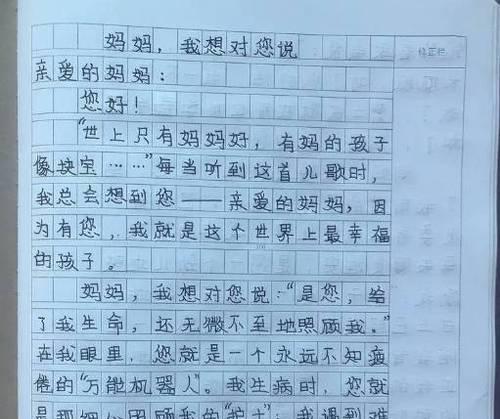 妈妈，我想对您说
亲爱的妈妈：
您好！
“世上只有妈妈好，有妈的孩子
像块宝……”每当听到这首儿歌时，
我总会想到您——亲爱的妈妈，因
为有您，我就是这个世界上最幸福
的孩子。
妈妈，我想对您说：“是您，给
了我生命，还无微不至地照顾我。”
在我眼里，您就是一个永远不知疲
倦的“万能机器人”。我生病时，您就
是
顾我的“护士”；我遇到难